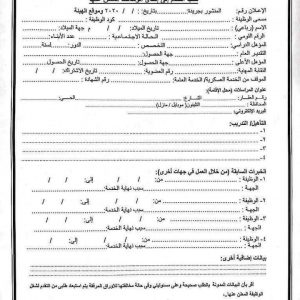 طلب التقدم إلى إحدى الوظائف المعلن عنها
الإعلان رقم: المنشور بجريدة: بتاريخ: / / ٢٠٢٠ وموقع الهيئة
مسمى الوظيفة: كود الوظيفة:
الاسم (رباعي): تاريخ الميلاد: / / م جهة الميلاد:
الرقم القومي: الحالة الاجتماعية: عدد الأبناء:
المؤهل الدراسي: التخصص: الدور: لسنة
التقدير العام: جهة الحصول:
المؤهل الأعلى: جهة الحصول: تاريخ الحصول: / /
رقم التأمينات: تاريخ الاشتراك: / /
الموقف من الخدمة العسكرية/العامة: رقم الشهادة:
عنوان المراسلات (محل الإقامة):
العقار: الشارع: الحي:
المحافظة: التليفون (موبايل / منزل):
البريد الإلكتروني:
التأهيل/ التدريب:
١-
٢-
٣-
٤-
الخبرات السابقة (من خلال العمل في جهات أخرى):
١- الوظيفة: من: / / إلى: / /
الجهة: سبب نهاية الخدمة:
٢- الوظيفة: من: / / إلى: / /
الجهة: سبب نهاية الخدمة:
٣- الوظيفة: من: / / إلى: / /
الجهة: سبب نهاية الخدمة:
٤- الوظيفة: من: / / إلى: / /
الجهة: سبب نهاية الخدمة:
بيانات إضافية أخرى:
أقر بأن البيانات المدونة بالطلب صحيحة وعلى مسئوليتي وفي حالة مخالفتها للأوراق المرفقة يتم استبعاد طلبي من التقدم لشغل
الوظيفة المعلن عنها.